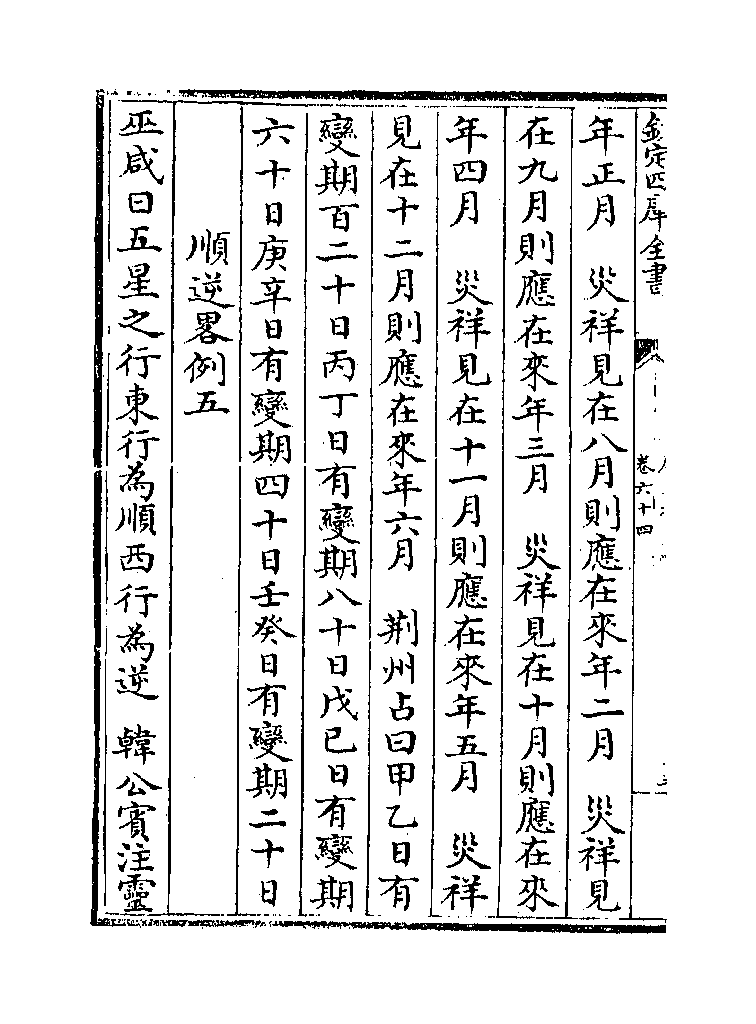 欽定四庫全書
卷六十四
年正月　災祥見在八月則應在來年二月　災祥見
在九月則應在來年三月　災祥見在十月則應在來
年四月　災祥見在十一月則應在來年五月　災祥
見在十二月則應在來年六月　荆州占曰甲乙日有
變期百二十日丙丁日有變期八十日戊己日有變期
六十日庚辛日有變期四十日壬癸日有變期二十日
順逆畧例五
巫咸曰五星之行東行為順西行為逆　韓公賓注靈